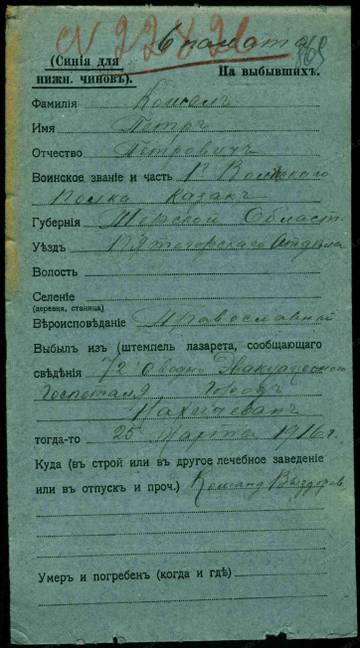 6 палата
(Синія для
нижн. чиновъ).
На выбывшихъ.
Фамилія
Имя Петръ
Отчество Петровичъ
Воинское званіе и часть 1го
Полка казакъ
Губернія Терской Област
Уѣздъ Пятогорскаго Отдѣла
Волость
Селеніе
(деревня, станица)
Вѣроисповѣданіе Православный
Выбылъ изъ (штемпель лазарета, сообщающаго
свѣдѣнія 72 сводно Эвакуаціоннаго
Госпеталя Город
Нахичевань
тогда-то 25 Марта 1916 г.
Куда (въ строй или въ другое лечебное заведеніе
или въ отпускъ и проч.) Команд Выздоров.
Умеръ и погребенъ (когда и гдѣ)